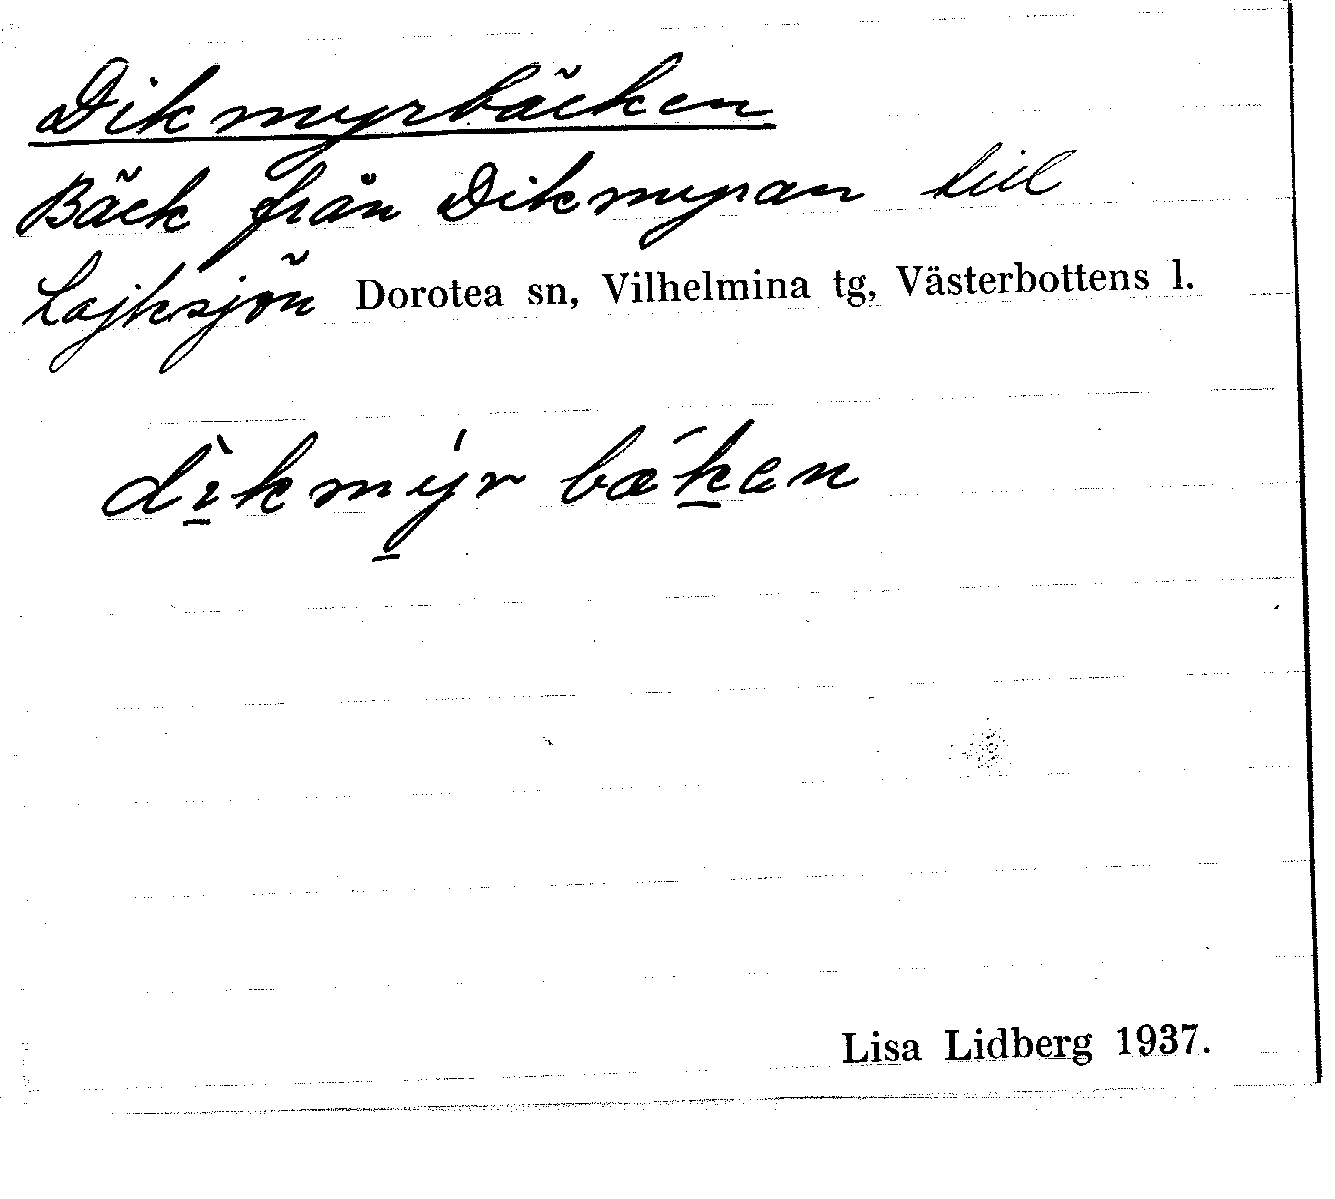 Dikmyrbäcken
Bäck från Dikmyran till
Lajksjön Dorotea sn, Vilhelmina tg, Västerbottens l.
dı̱̀kmý̱r bæ´ḵen
Lisa Lidberg 1937.